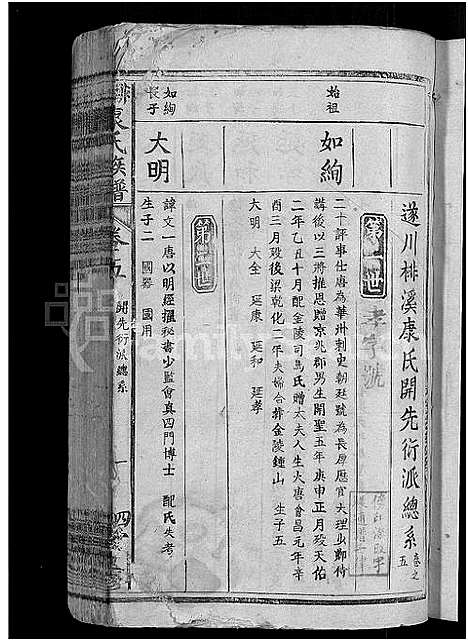 遂川棑溪康氏開先衍派總系 卷之五
第一世
孝字號
始祖
如絢
二十評事仕唐為華州刺史朝廷號為長厚歷官大理出鄭侍
講後以三將推恩贈京兆郡男生開聖五年庚申正月殁天佑
二年乙丑十月配金陵司馬氏贈太夫人生大唐會昌元年辛
酉三月殁後梁乾化二年夫婦合葬金陵鍾山 生子五
大明 大全 延康 延和 延孝
第二世
如絢長子
大明
諱文一唐以明經擢秘書少監會真四門博士 配氏失考
生子二 國器 國用
康氏族譜
卷五
開先衍派總系
一